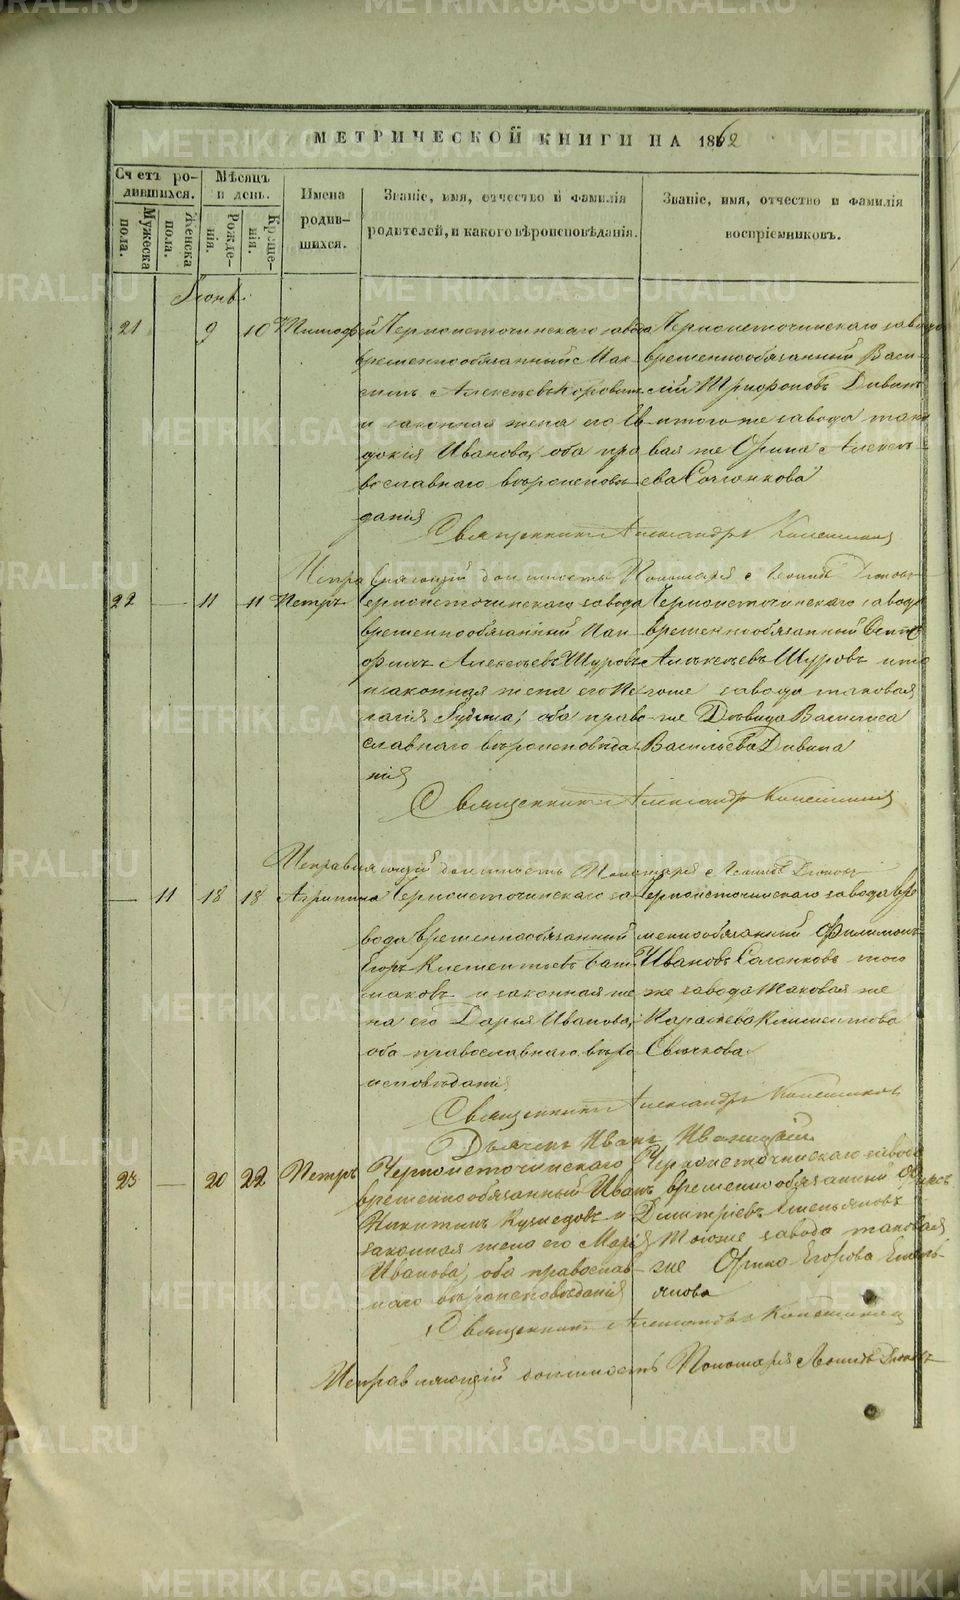 МЕТРИЧЕСКОЙ КНИГИ НА 1862
Счетъ ро-
дившихся.
Мужеска
пола.
Женска
пола.
Мѣсяцъ
и день.
Рожде-
нія.
Креще-
нія.
Имена
родив-
шихся.
Званіе, имя, отчество и фамилія
родителей, и какого вѣроисповѣданія.
Званіе, имя, отчество и фамилія
воспріемниковъ.
Іюнь
21 9 10 Тимофей Черноисточинскаго завода
временнообязанный Мак-
симъ Алексѣевъ Коровинъ
и законная жена его Ев-
докія Иванова, оба пра
вославнаго вѣроисповѣ-
данія
Черноисточинскаго завода
временнообязанный Васи-
лій Трифоновъ Дивинъ
и того же завода тако
вая же Орина Алексѣ-
ева Солонкова
Священникъ Александръ
Исправляющій должность Пономаря Леонидъ
22 — 11 11 Петръ Черноисточинскаго завода
временнообязанный Пан-
филъ Алексѣевъ Шуровъ
и законная жена его Пе-
лагія оба право-
славнаго вѣроисповѣда-
нія
Черноисточинскаго завода
временнообязанный Осипъ
Алексѣевъ Шуровъ и то
гоже завода таковая
же Дѣвица Василиса
Васильева Дивина
Священникъ Александръ
Исправляющій должность Пономаря Леонидъ
— 11 18 18 Агрипина Черноисточинскаго за-
вода временнообязанный
Егоръ Климентьевъ Баш-
маковъ и законная же
на его Дарья Иванова,
оба православнаго вѣро
исповѣданія
Черноисточинскаго завода вре
меннообязанный Филимонъ
Ивановъ Солонковъ того
же завода таковая же
Климентова
Свѣчкова
Священникъ Александръ
Дьячекъ Иванъ
23 — 20 22 Петръ Черноисточинскаго
временнообязанный Иванъ
Никитинъ и
законная жена его Марія
Иванова, оба православ-
наго вѣроисповѣданія
Черноисточинскаго завода
временнообязанный Фирсъ
Дмитріевъ Емельяновъ
Тогоже завода таковая
же Орина Егорова Емель-
янова
Священникъ Александръ
Исправляющій должность Пономаря Леонидъ
METRIKI.GASO-URAL.RU